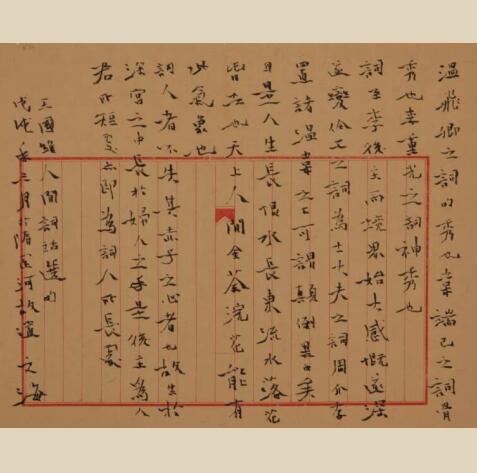 溫飛卿之詞句秀也韋端己之詞骨
秀也李重光之詞神秀也
詞至李後主而境界始大感慨遂深
遂變伶工之詞為士大夫之詞周介存
置諸溫韋之下可謂顛倒黑白矣
自是人生長恨水長東流水落花
春去也天上人間金荃浣花能有
此氣象也
詞人者不失其赤子之心者也故生於
深宮之中長於婦人之手是後主為人
君所短處亦即為詞人所長處
王國維人間詞話選句
戊戌三月於隋運河故道文海